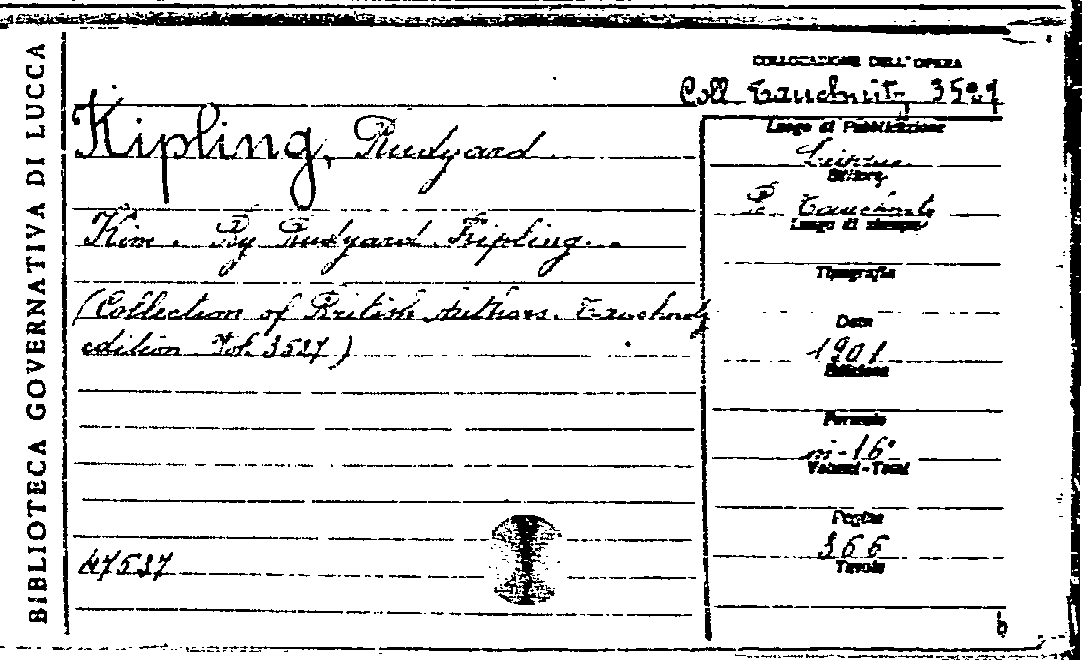 BIBLIOTECA GOVERNATIVA DI LUCCA
COLLOCAZIONE DELL'OPERA
Coll. Tauchnitz
Kipling, Rudyard
Kim. By Rudyard Kipling...
(Collection of British Authors. Tauchnitz
edition Vol. 3527)
47537
Luogo di Pubblicazione
Editore
Luogo di stampa
Tipografia
Data
1901
Edizione
Formato
in-16°
Volumi-Tomi
Pagine
366
Tavole
b